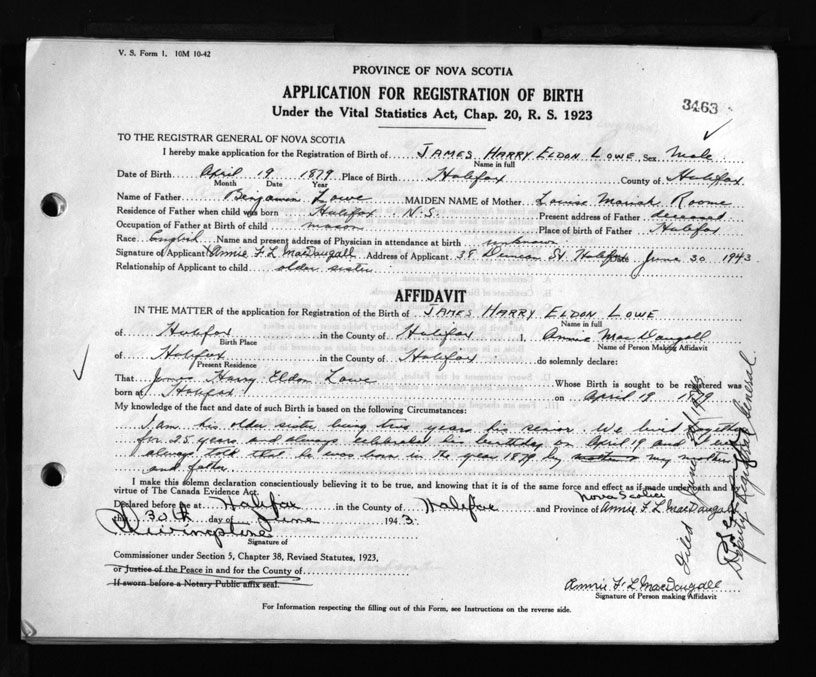 V. S. Form 1. 10M 10-42
PROVINCE OF NOVA SCOTIA
APPLICATION FOR REGISTRATION OF BIRTH
Under the Vital Statistics Act, Chap. 20, R. S. 1923
3463
TO THE REGISTRAR GENERAL OF NOVA SCOTIA
I hereby make application for the Registration of Birth of JAMES HARRY ELDON LOWE Sex Male
Name in full
Date of Birth April 19 1879 Place of Birth Halifax County of Halifax
Month Date Year
Name of Father Benjamin Lowe MAIDEN NAME of Mother Louisa Mariah Roome
Residence of Father when child was born Halifax N.S. Present address of Father deceased
Occupation of Father at Birth of child mason Place of birth of Father Halifax
Race English Name and present address of Physician in attendance at birth unknown
Signature of Applicant Annie F L MacDougall Address of Applicant 38 Duncan St Halifax Date June 30 1943
Relationship of Applicant to child older sister
AFFIDAVIT
IN THE MATTER of the application for Registration of the Birth of JAMES HARRY ELDON LOWE
Name in full
of Halifax in the County of Halifax I, Annie MacDougall
Birth Place Name of Person Making Affidavit
of Halifax in the County of Halifax do solemnly declare:
Present Residence
That James Harry Eldon Lowe Whose Birth is sought to be registered was
born at Halifax on April 19 1879
My knowledge of the fact and date of such Birth is based on the following Circumstances:
I am his older sister being two years his senior. We lived together
for 25 years and always celebrated his birthday on April 19 and I was
always told that he was born in the year 1879 by my mother
and father.
I make this solemn declaration conscientiously believing it to be true, and knowing that it is of the same force and effect as if made under oath and by
virtue of The Canada Evidence Act.
Declared before me at Halifax in the County of Halifax and Province of Nova Scotia
this 30th day of June 1943. Annie F L MacDougall
Signature of
Commissioner under Section 5, Chapter 38, Revised Statutes, 1923,
or Justice of the Peace in and for the County of
If sworn before a Notary Public affix seal.
Annie F L MacDougall
Signature of Person making Affidavit
For Information respecting the filling out of this Form, see Instructions on the reverse side.
Deputy Registrar General